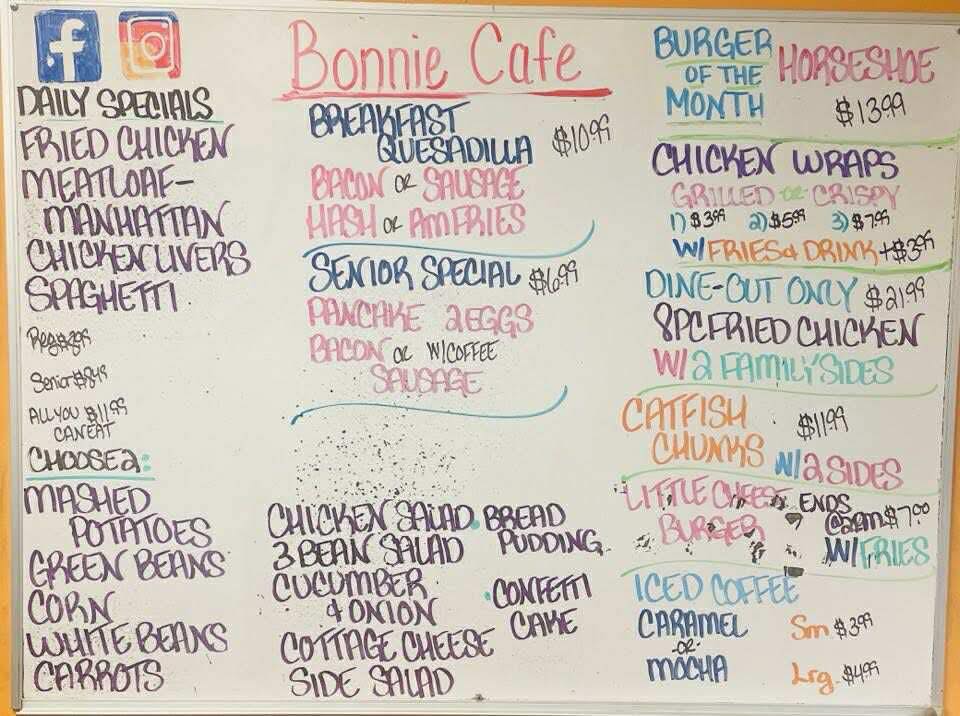 f
Bonnie Cafe
DAILY SPECIALS
FRIED CHICKEN
MEATLOAF-
MANHATTAN
CHICKEN LIVERS
SPAGHETTI
Senior $8.49
ALL YOU $11.99
CAN EAT
CHOOSE 2:
MASHED
POTATOES
GREEN BEANS
CORN
WHITE BEANS
CARROTS
BREAKFAST
QUESADILLA $10.99
BACON OR SAUSAGE
HASH OR AM FRIES
SENIOR SPECIAL $6.99
PANCAKE 2 EGGS
BACON OR W/COFFEE
SAUSAGE
CHICKEN SALAD
3 BEAN SALAD
CUCUMBER
& ONION
COTTAGE CHEESE
SIDE SALAD
BREAD
PUDDING
CONFETTI
CAKE
BURGER
OF THE
MONTH
HORSESHOE
$13.99
CHICKEN WRAPS
GRILLED OR CRISPY
1) $3.99 2) $5.99 3) $7.99
W/ FRIES & DRINK +$3.95
DINE-OUT ONLY $21.99
8PC FRIED CHICKEN
W/ 2 FAMILY SIDES
CATFISH
CHUNKS $11.99
W/ 2 SIDES
LITTLE CHEESE
BURGER
ENDS
@2PM $7.00
W/ FRIES
ICED COFFEE
CARAMEL
-OR-
MOCHA
Sm $3.99
Lrg. $4.99